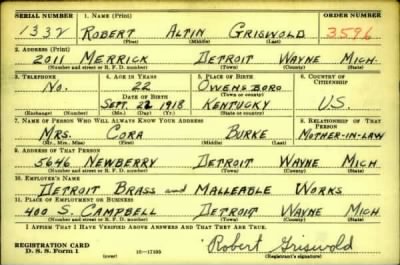 SERIAL NUMBER 1. NAME (Print) ORDER NUMBER
1332 ROBERT ALTIN GRISWOLD 3596
(First) (Middle) (Last)
2. ADDRESS (Print)
2011 MERRICK DETROIT WAYNE MICH.
(Number and street or R. F. D. number) (Town) (County) (State)
3. TELEPHONE 4. AGE IN YEARS 5. PLACE OF BIRTH 6. COUNTRY OF CITIZENSHIP
No. 22 OWENSBORO
DATE OF BIRTH (Town or county)
SEPT. 22 1918 KENTUCKY U.S.
(Exchange) (Number) (Mo.) (Day) (Yr.) (State or country)
7. NAME OF PERSON WHO WILL ALWAYS KNOW YOUR ADDRESS 8. RELATIONSHIP OF THAT PERSON
MRS. CORA BURKE MOTHER-IN-LAW
(Mr., Mrs., Miss) (First) (Middle) (Last)
9. ADDRESS OF THAT PERSON
5646 NEWBERRY DETROIT WAYNE MICH
(Number and street or R. F. D. number) (Town) (County) (State)
10. EMPLOYER'S NAME
DETROIT BRASS and MALLEABLE WORKS
11. PLACE OF EMPLOYMENT OR BUSINESS
400 S. CAMPBELL DETROIT WAYNE MICH
(Number and street or R. F. D. number) (Town) (County) (State)
I AFFIRM THAT I HAVE VERIFIED ABOVE ANSWERS AND THAT THEY ARE TRUE.
REGISTRATION CARD
D. S. S. Form 1 (over) 16—17105 Robert Griswold
(Registrant's signature)